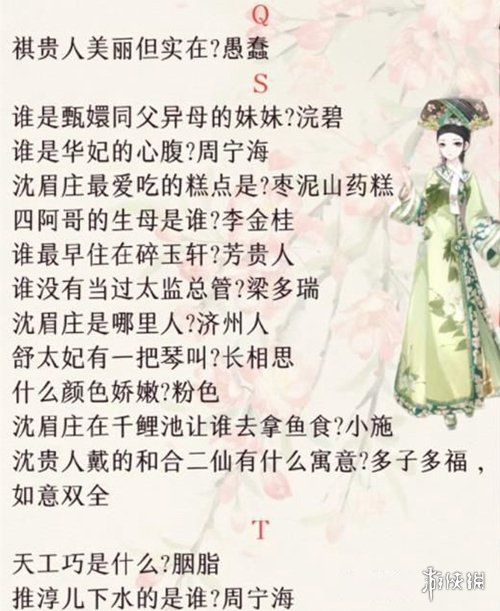 Q
祺贵人美丽但实在?愚蠢
S
谁是甄嬛同父异母的妹妹?浣碧
谁是华妃的心腹?周宁海
沈眉庄最爱吃的糕点是?枣泥山药糕
四阿哥的生母是谁?李金桂
谁最早住在碎玉轩?芳贵人
谁没有当过太监总管?梁多瑞
沈眉庄是哪里人?济州人
舒太妃有一把琴叫?长相思
什么颜色娇嫩?粉色
沈眉庄在千鲤池让谁去拿鱼食?小施
沈贵人戴的和合二仙有什么寓意?多子多福，
如意双全
T
天工巧是什么?胭脂
推淳儿下水的是谁?周宁海
游侠网